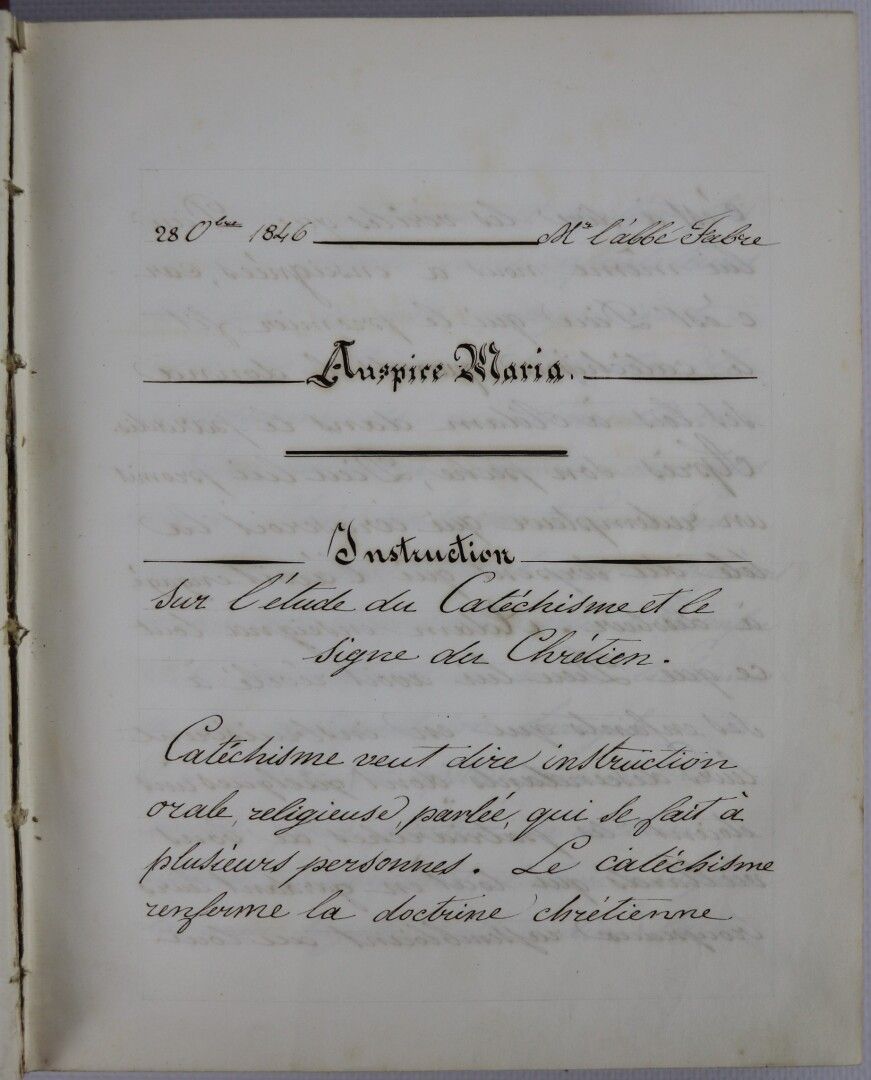 28 Obre 1846 Mr l'abbé Fabre
Auspice Maria.
Instruction
sur l'étude du Catéchisme et le
signe du Chrétien.
Catéchisme veut dire instruction
orale, religieuse, parlée, qui se fait à
plusieurs personnes. Le catéchisme
renferme la doctrine chrétienne